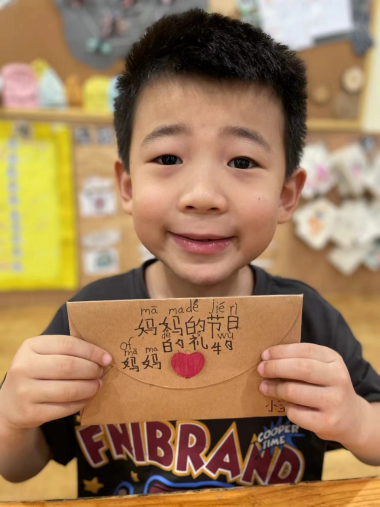 mā ma de jié rì
妈妈的节日
mā ma de lǐ wù
妈妈的礼物
小
FNIBRAND
COOPER
TIME